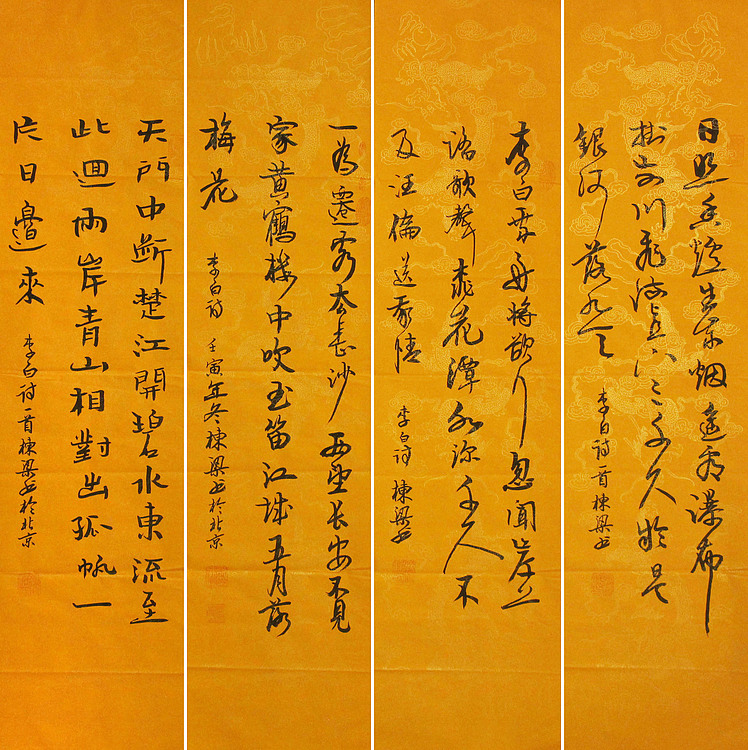 日照香爐生紫烟遙看瀑布
掛前川飛流直下三千尺疑是
銀河落九天
李白诗一首棟梁书
李白乘舟將欲行忽聞岸上
踏歌聲桃花潭水深千尺不
及汪倫送我情
李白诗 棟梁书
一為遷客去長沙西望長安不見
家黃鶴樓中吹玉笛江城五月落
梅花
李白诗 壬寅年冬棟梁书於北京
天門中斷楚江開碧水東流至
此迴兩岸青山相對出孤帆一
片日邊來
李白诗一首棟梁书於北京